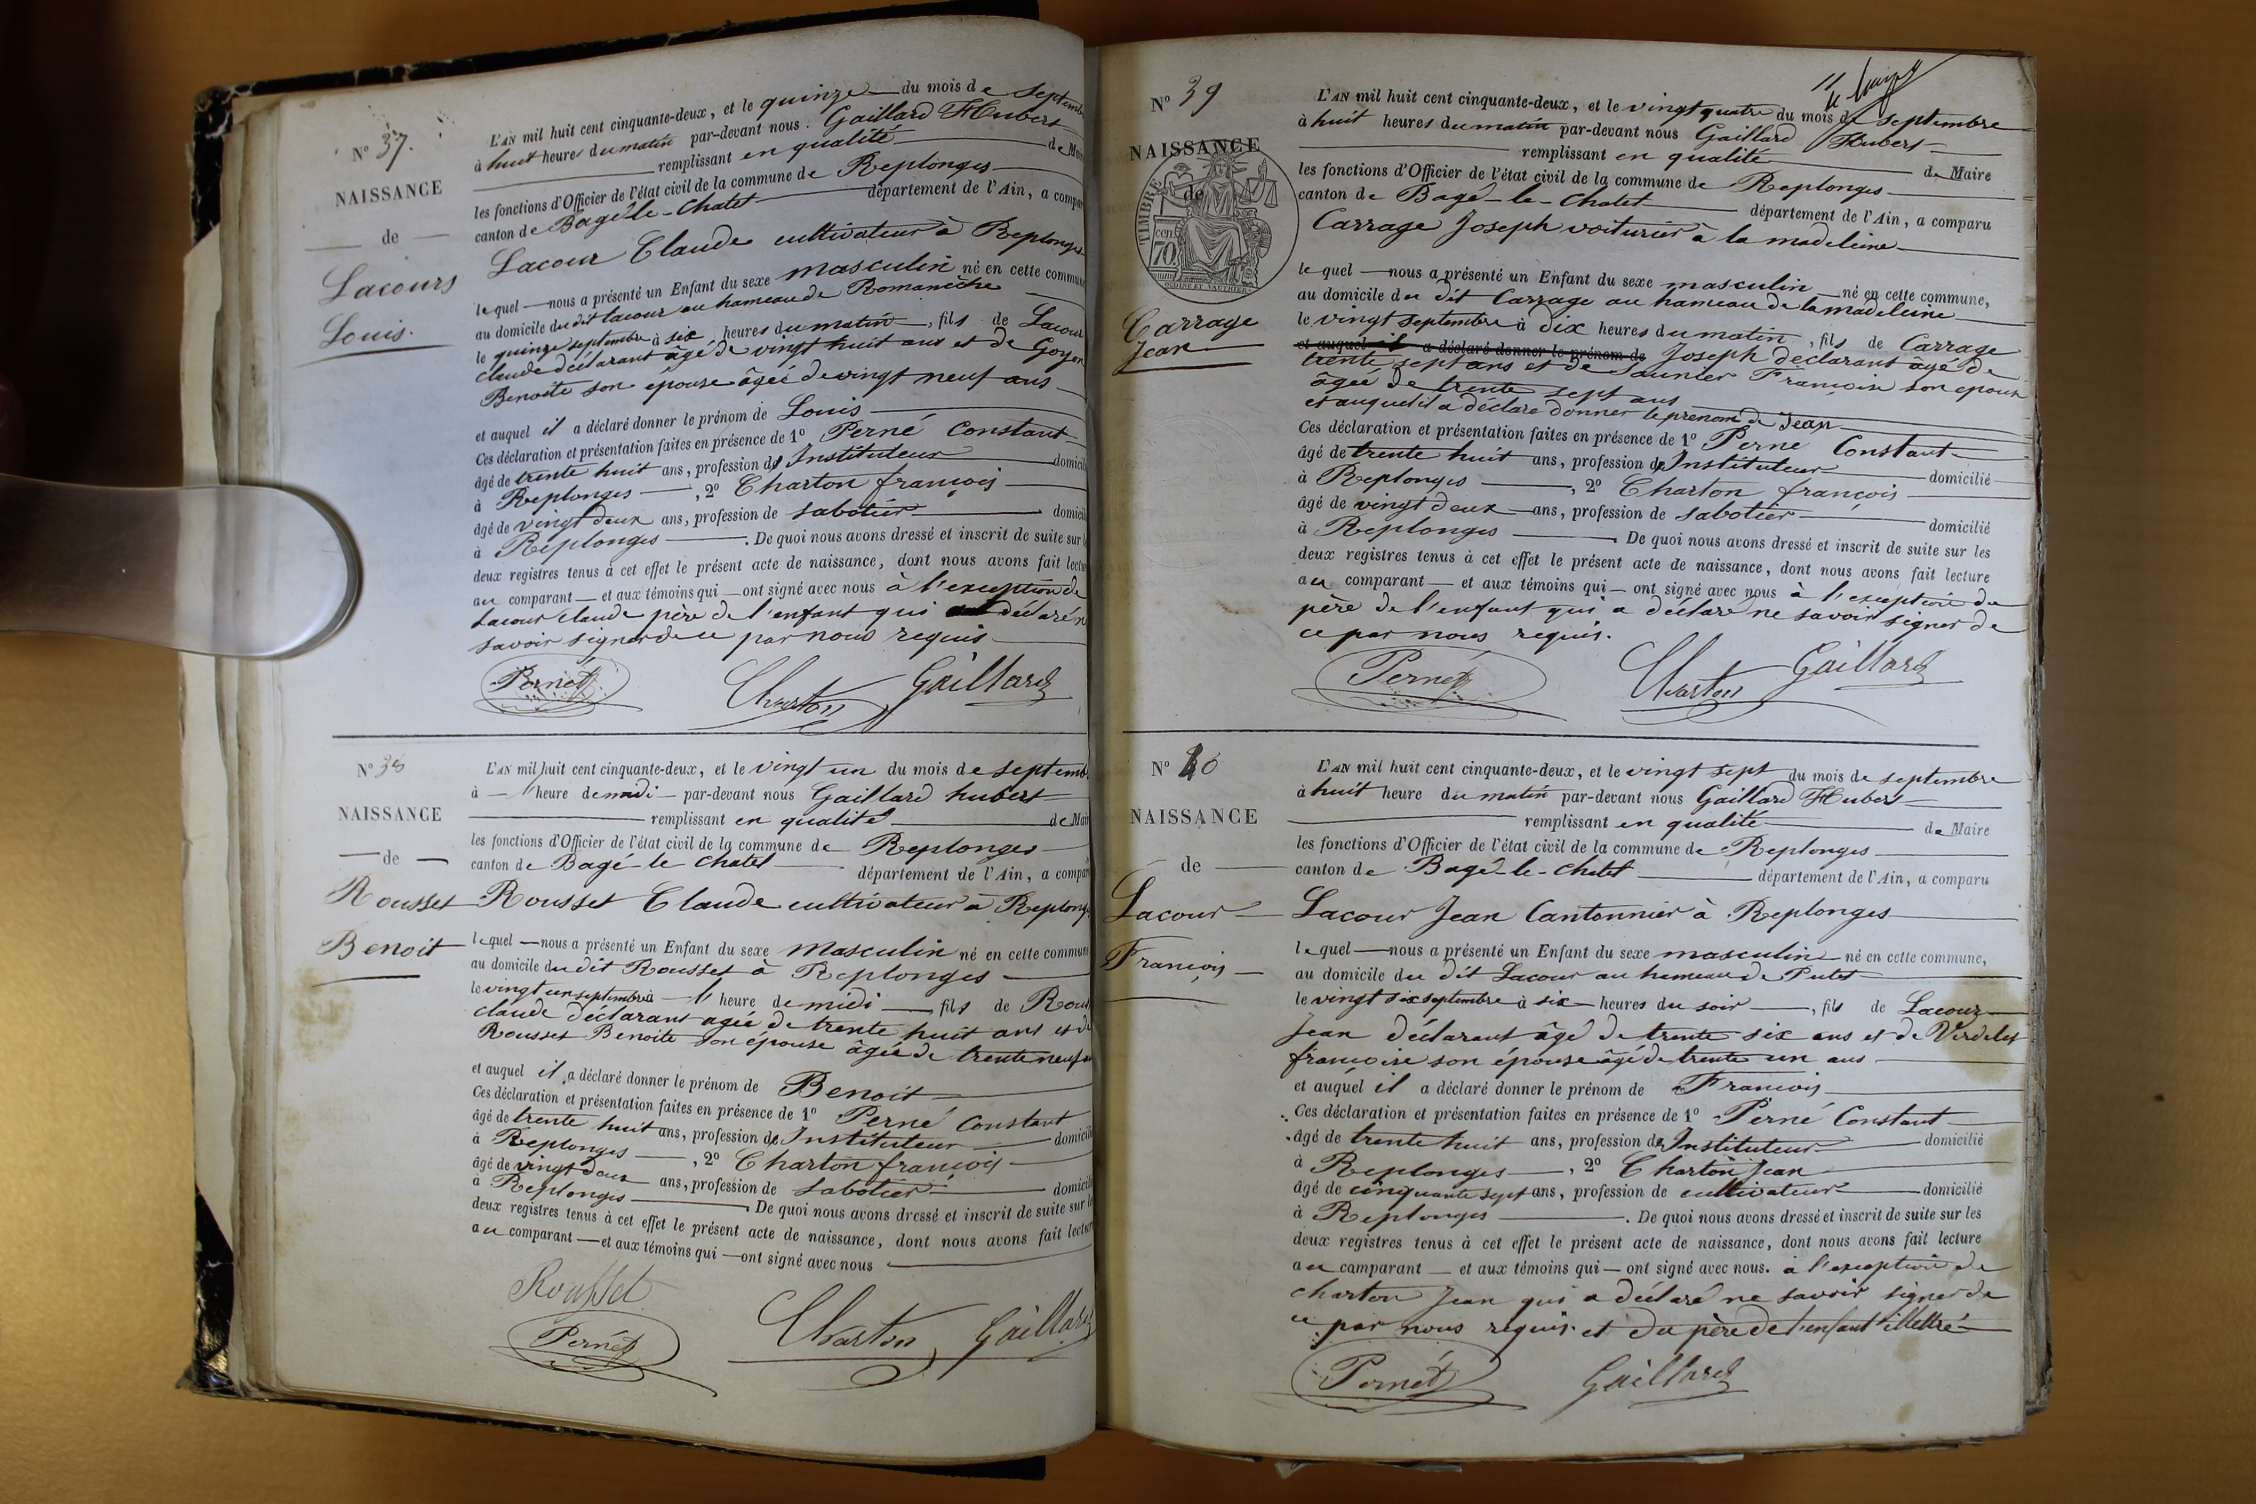 N° 37.
NAISSANCE
de
Lacours
Louis.
L'AN mil huit cent cinquante-deux, et le quinze du mois de septemb
à huit heures du matin par-devant nous Gaillard Hubert
remplissant en qualité de Mai
les fonctions d'Officier de l'état civil de la commune de Replonges
canton de Bagé-le-Chatel département de l'Ain, a compar
Lacour Claude cultivateur à Replonges
lequel nous a présenté un Enfant du sexe masculin né en cette commune
au domicile du dit Lacour au hameau de Romanèche
le quinze septembre à six heures du matin, fils de Lacour
Claude déclarant âgé de vingt huit ans et de Goyon
Benoite son épouse âgée de vingt neuf ans
et auquel il a déclaré donner le prénom de Louis
Ces déclaration et présentation faites en présence de 1° Perné Constant
âgé de trente huit ans, profession d'Instituteur domicili
à Replonges, 2° Charton françois
âgé de vingt deux ans, profession de sabotier domicili
à Replonges. De quoi nous avons dressé et inscrit de suite sur l
deux registres tenus à cet effet le présent acte de naissance, dont nous avons fait lectur
au comparant et aux témoins qui ont signé avec nous à l'exception de
Lacour Claude père de l'enfant qui déclaré n
savoir signer de ce par nous requis
Pernét Charton Gaillard
N° 38
NAISSANCE
de
Rousset
Benoit
L'AN mil huit cent cinquante-deux, et le vingt un du mois de septemb
à heure de midi par-devant nous Gaillard hubert
remplissant en qualité de Mair
les fonctions d'Officier de l'état civil de la commune de Replonges
canton de Bagé-le chatel département de l'Ain, a comparu
Rousset Claude cultivateur à Replong
lequel nous a présenté un Enfant du sexe masculin né en cette commune
au domicile du dit Rousset à Replonges
le vingt un septembre à l' heure de midi fils de Rous
claude déclarant agée de trente huit ans et de
Rousset Benoite son épouse âgée de trente neuf an
et auquel il a déclaré donner le prénom de Benoit
Ces déclaration et présentation faites en présence de 1° Perné Constant
âgé de trente huit ans, profession d'Instituteur domicilié
à Replonges, 2° Charton françois
âgé de vingt deux ans, profession de sabotier domicilié
à Replonges De quoi nous avons dressé et inscrit de suite sur le
deux registres tenus à cet effet le présent acte de naissance, dont nous avons fait lectur
au comparant et aux témoins qui ont signé avec nous
Rousset
Pernét Charton Gaillard
N° 39
NAISSANCE
de
TIMBRE
70 cen.
Carrage
Jean
L'AN mil huit cent cinquante-deux, et le vingt quatre du mois de septembre
à huit heures du matin par-devant nous Gaillard Hubert
remplissant en qualité de Maire
les fonctions d'Officier de l'état civil de la commune de Replonges
canton de Bagé-le-Chatel département de l'Ain, a comparu
Carrage Joseph voiturier à la madeleine
lequel nous a présenté un Enfant du sexe masculin né en cette commune,
au domicile du dit Carrage au hameau de la madeleine
le vingt septembre à dix heures du matin, fils de Carrage
et auquel il a déclaré donner le prénom de Joseph déclarant âgé de
trente sept ans et de Saunier Françoise son epouse
âgée de trente sept ans
et auquel il a déclaré donner le prenom de Jean
Ces déclaration et présentation faites en présence de 1° Perné Constant
âgé de trente huit ans, profession d'Instituteur domicilié
à Replonges, 2° Charton françois
âgé de vingt deux ans, profession de sabotier domicilié
à Replonges. De quoi nous avons dressé et inscrit de suite sur les
deux registres tenus à cet effet le présent acte de naissance, dont nous avons fait lecture
au comparant et aux témoins qui ont signé avec nous à l'exception du
père de l'enfant qui a déclaré ne savoir signer de
ce par nous requis.
Pernét Charton Gaillard
N° 40
NAISSANCE
de
Lacour
François
L'AN mil huit cent cinquante-deux, et le vingt sept du mois de septembre
à huit heure du matin par-devant nous Gaillard Hubert
remplissant en qualité de Maire
les fonctions d'Officier de l'état civil de la commune de Replonges
canton de Bagé-le-Chatel département de l'Ain, a comparu
Lacour Jean Cantonnier à Replonges
lequel nous a présenté un Enfant du sexe masculin né en cette commune,
au domicile du dit Lacour au hameau de Putet
le vingt six septembre à six heures du soir, fils de Lacour
Jean déclarant âgé de trente six ans et de Verdelet
françoise son épouse âgé de trente un ans
et auquel il a déclaré donner le prénom de François
Ces déclaration et présentation faites en présence de 1° Perné Constant
âgé de trente huit ans, profession d'Instituteur domicilié
à Replonges, 2° Charton Jean
âgé de cinquante sept ans, profession de cultivateur domicilié
à Replonges. De quoi nous avons dressé et inscrit de suite sur les
deux registres tenus à cet effet le présent acte de naissance, dont nous avons fait lecture
au comparant et aux témoins qui ont signé avec nous. à l'exception de
charton Jean qui a déclaré ne savoir signer de
ce par nous requis. et du père de l'enfant illettré
Pernét Gaillard